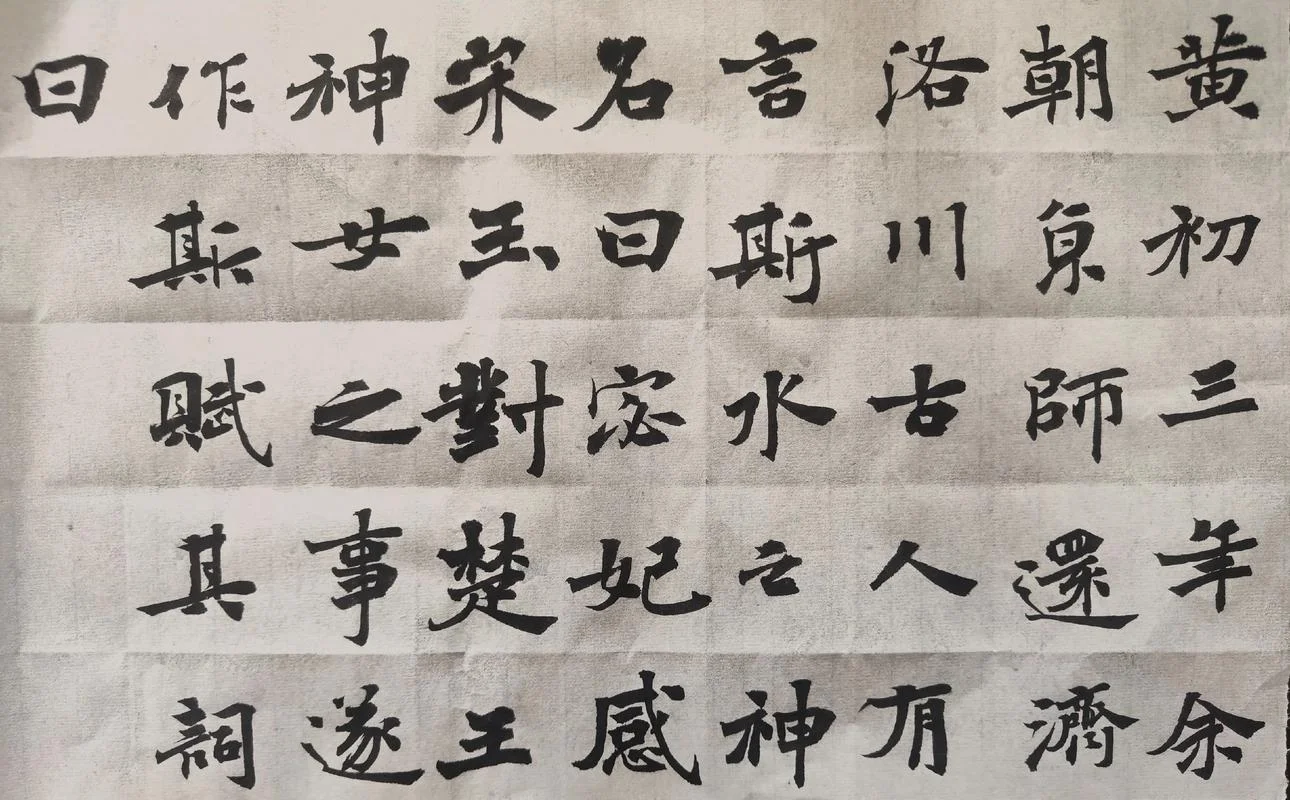 黃初三年余
朝亰師還濟
洛川古人有
言斯水之神
名曰宓妃感
宋玉對楚王
神女之事遂
作斯賦其詞
曰